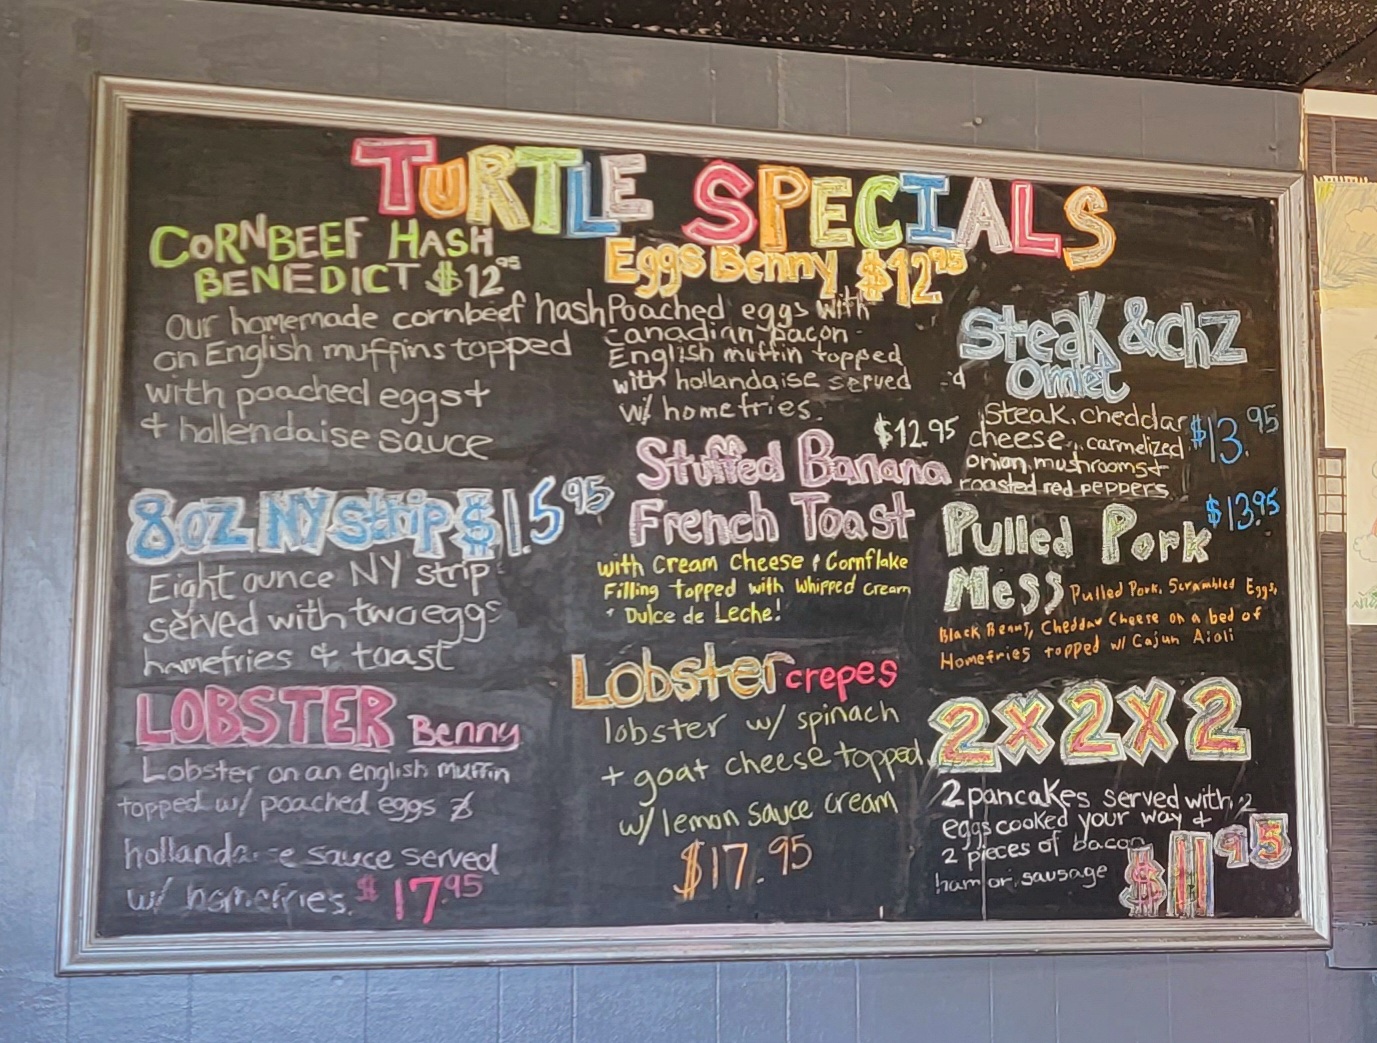 TURTLE SPECIALS
CORNBEEF HASH
BENEDICT $12.95
Our homemade cornbeef hash
on English muffins topped
with poached eggs +
+ hollendaise sauce
8oz NY strip $15.95
Eight ounce NY strip
served with two eggs
homefries + toast
LOBSTER Benny
Lobster on an english muffin
topped w/ poached eggs &
hollandaise sauce served
w/ homefries. $17.95
Eggs Benny $12.95
Poached eggs with
canadian bacon
English muffin topped
with hollandaise served
w/ homefries.
$12.95
Stuffed Banana
French Toast
with Cream Cheese + Cornflake
Filling topped with Whipped Cream
+ Dulce de Leche!
Lobster crepes
lobster w/ spinach
+ goat cheese topped
w/ lemon sauce cream
$17.95
Steak & chz
Omlet
steak, cheddar
cheese, carmelized $13.95
onion, mushrooms +
roasted red peppers
Pulled Pork $13.95
Mess Pulled Pork, Scrambled Eggs,
Black Beans, Cheddar Cheese on a bed of
Homefries topped w/ Cajun Aioli
2x2x2
2 pancakes served with 2
eggs cooked your way +
2 pieces of bacon
ham or sausage $11.95